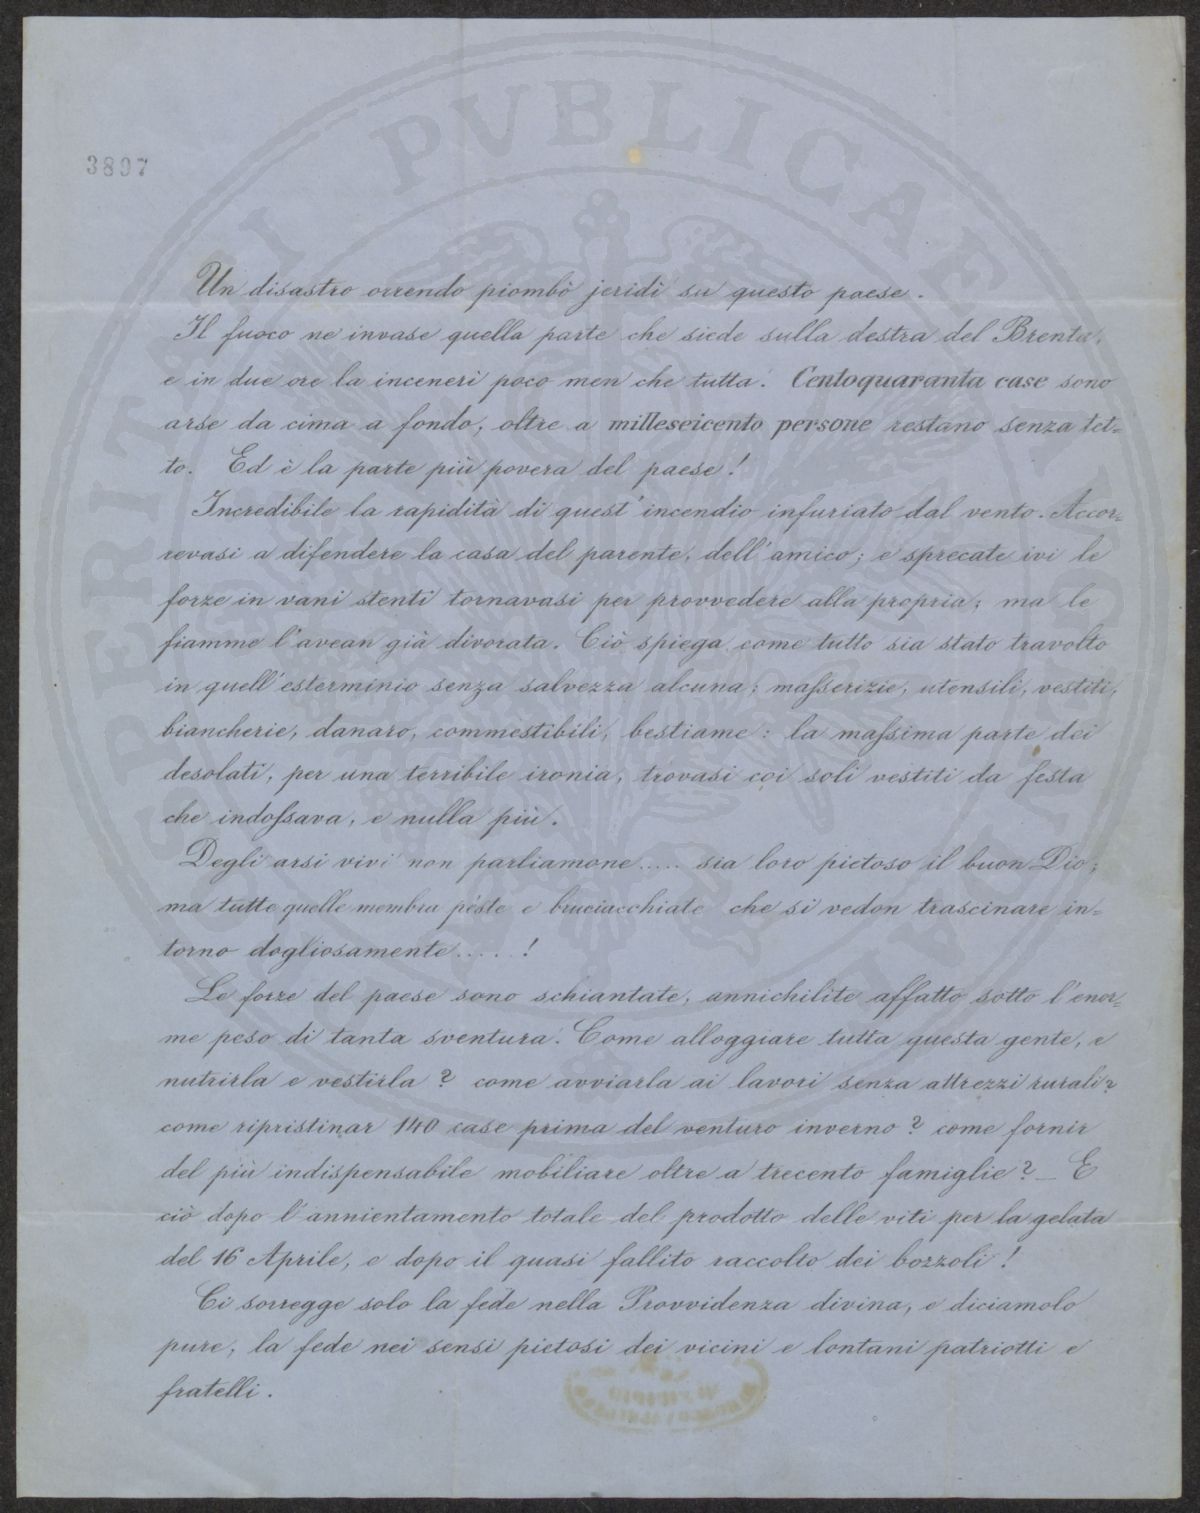 PERITATI PVBLICAE
3897
Un disastro orrendo piombò jeridì su questo paese.
Il fuoco ne invase quella parte che siede sulla destra del Brenta,
e in due ore la incenerì poco men che tutta. Centoquaranta case sono
arse da cima a fondo, oltre a milleseicento persone restano senza tet=
to. Ed è la parte più povera del paese!
Incredibile la rapidità di quest'incendio infuriato dal vento. Accor=
revasi a difendere la casa del parente, dell'amico; e sprecate ivi le
forze in vani stenti tornavasi per provvedere alla propria; ma le
fiamme l'avean già divorata. Ciò spiega come tutto sia stato travolto
in quell'esterminio senza salvezza alcuna; masserizie, utensili, vestiti,
biancherie, danaro, commestibili, bestiame: la massima parte dei
desolati, per una terribile ironia, trovasi coi soli vestiti da festa
che indossava, e nulla più.
Degli arsi vivi non parliamone..... sia loro pietoso il buon Dio;
ma tutte quelle membra pèste e bruciacchiate che si vedon trascinare in=
torno dogliosamente.....!
Le forze del paese sono schiantate, annichilite affatto sotto l'enor=
me peso di tanta sventura. Come alloggiare tutta questa gente, e
nutrirla e vestirla? come avviarla ai lavori senza attrezzi rurali?
come ripristinar 140 case prima del venturo inverno? come fornir
del più indispensabile mobiliare oltre a trecento famiglie? _ E
ciò dopo l'annientamento totale del prodotto delle viti per la gelata
del 16 Aprile, e dopo il quasi fallito raccolto dei bozzoli!
Ci sorregge solo la fede nella Provvidenza divina, e diciamolo
pure, la fede nei sensi pietosi dei vicini e lontani patriotti e
fratelli.